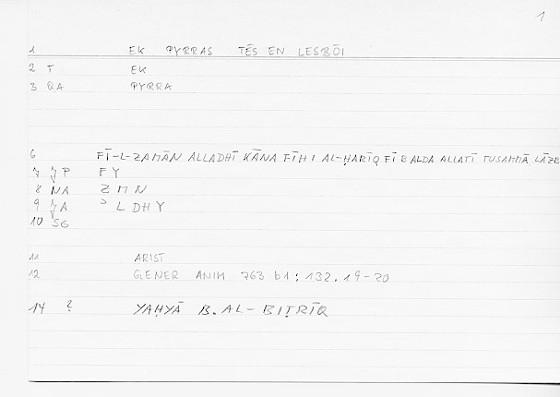 1
1 EK PYRRAS TĒS EN LESBŌI
2 T EK
3 QA PYRRA
6 FĪ-L-ZAMĀN ALLADHĪ KĀNA FĪHI AL-ḤARĪQ FĪ BALDA ALLATĪ TUSAMMĀ
7 P FY
8 NA ZMN
9 A ʾLDHY
10 SG
11 ARIST
12 GENER ANIM 763 b1: 132.19-20
14 ? YAḤYĀ B. AL-BIṬRĪQ